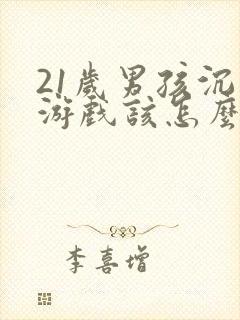 21歲男孩沉
游戲該怎麼
李喜增